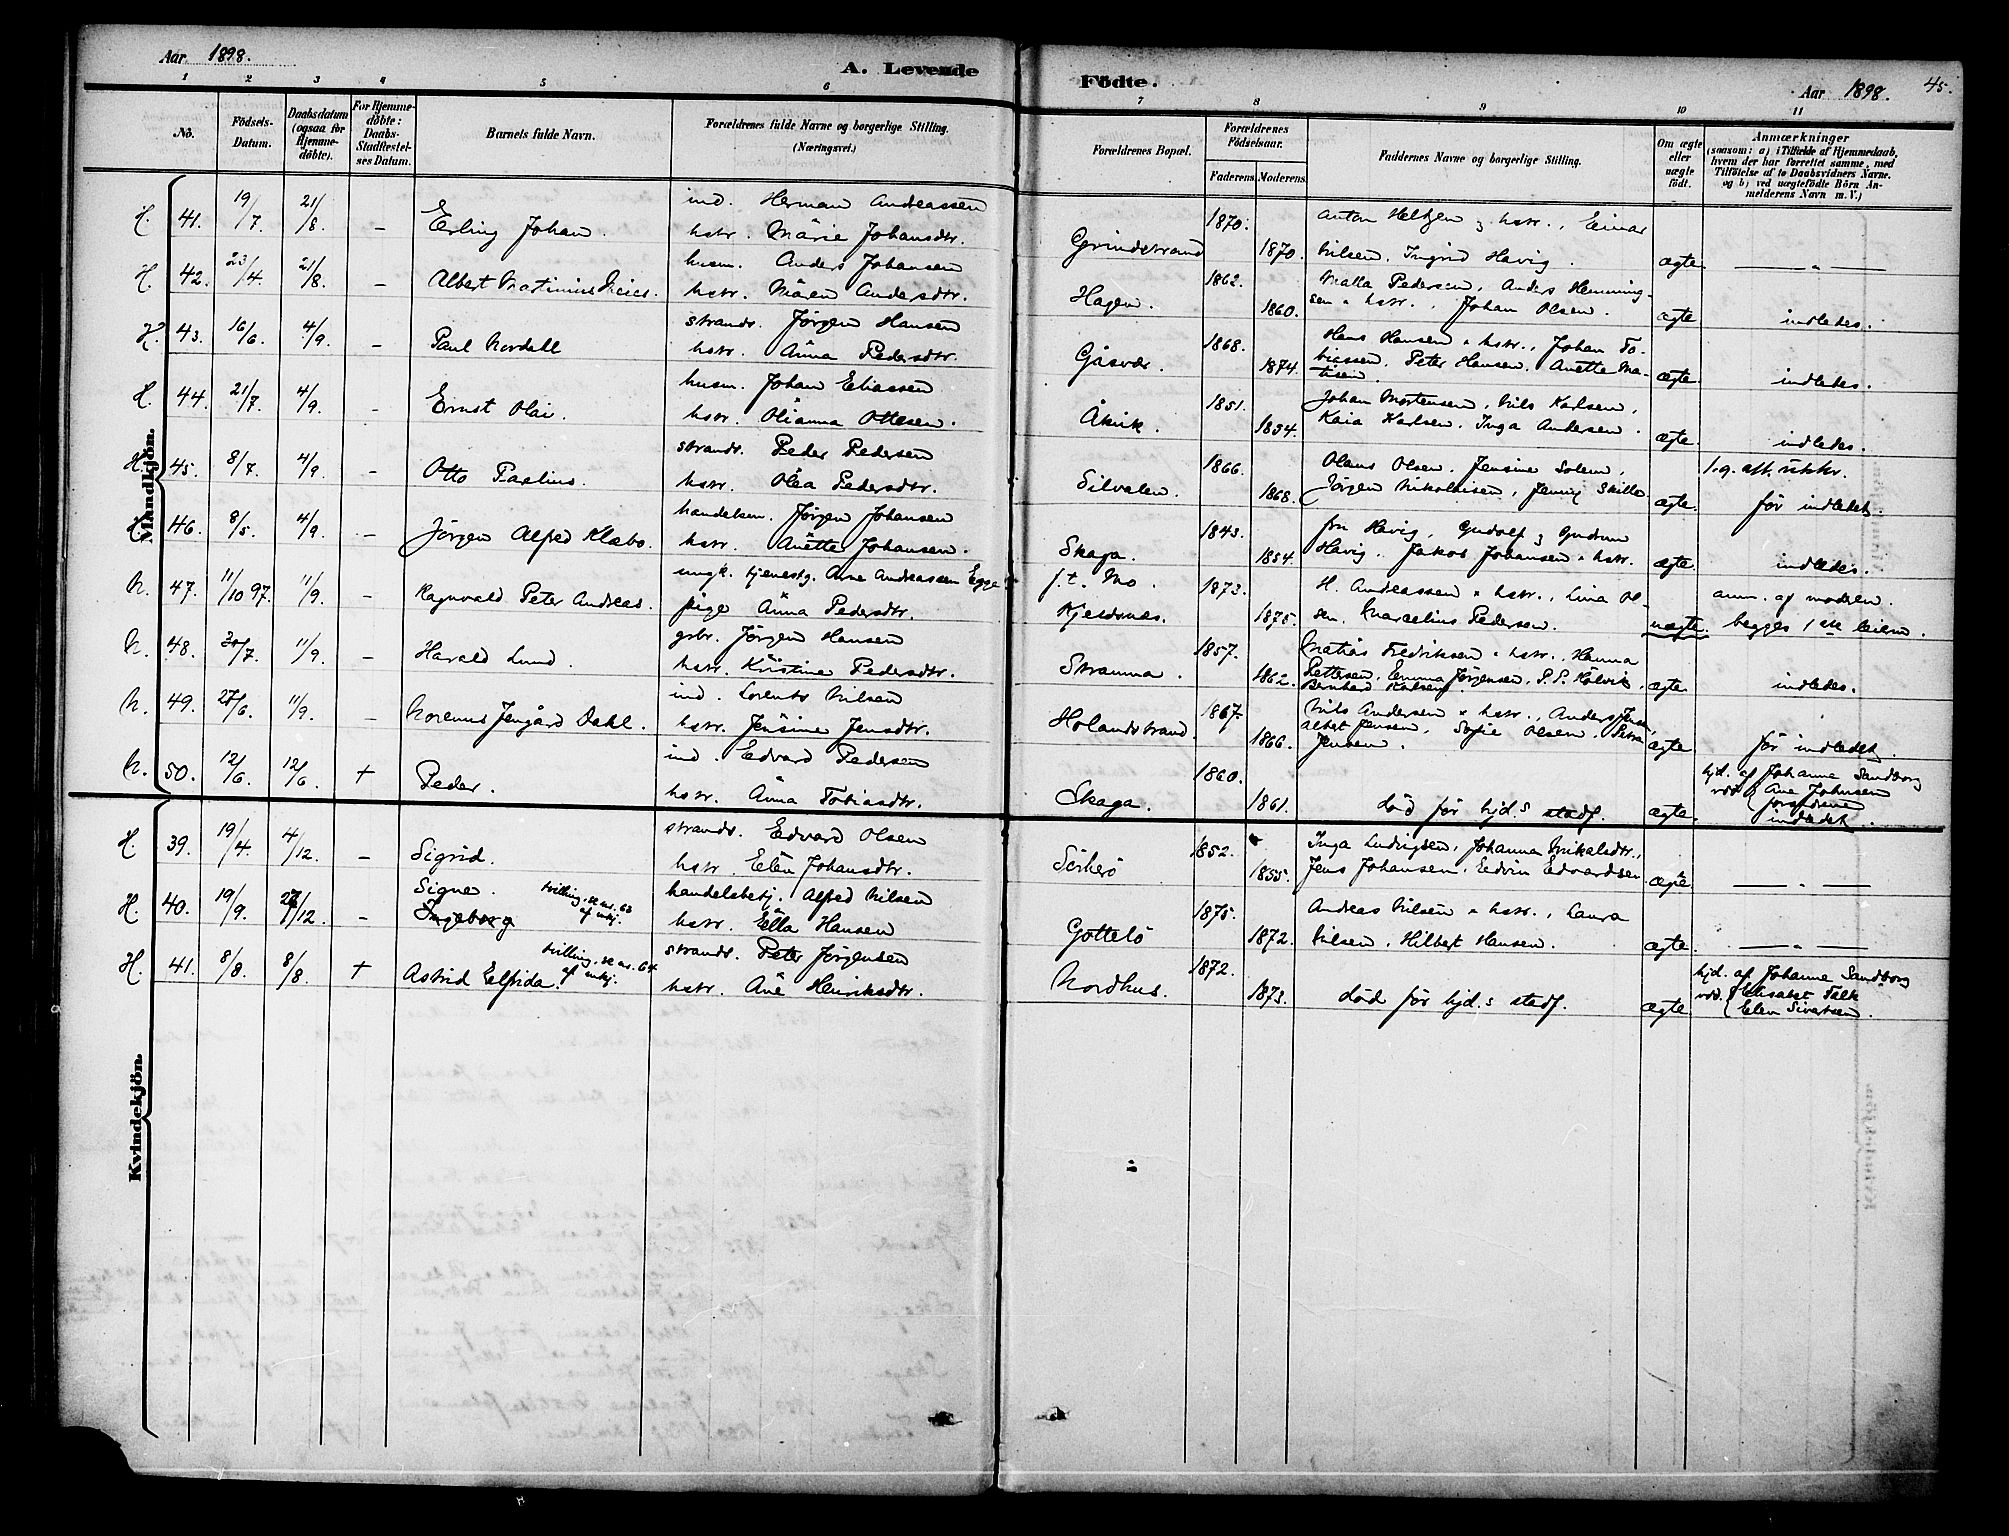 Aar 1898.
A. Levende
Födte.
Aar 1898.
45.
1 2 3 4 5 6 7 8 9 10 11
No.
Födsels-
Datum.
Daabsdatum
(ogsaa for
Hjemme-
døbte).
For Hjemme-
døbte:
Daabs-
Stadfæstel-
ses Datum.
Barnets fulde Navn.
Forældrenes fulde Navne og borgerlige Stilling.
(Næringsvei.)
Forældrenes Bopæl.
Forældrenes
Födselsaar.
Faderens Moderens
Faddernes Navne og borgerlige Stilling.
Om ægte
eller
uægte
født.
Anmærkninger
(saasom: a) i Tilfælde af Hjemmedaab,
hvem der har forrettet samme, med
Tilföielse af to Daabsvidners Navne.
og b) ved uægtefödte Börn An-
melderens Navn m. V.)
Mandkjön.
H. 41. 19/7 21/8 – Erling Johan. ind. Herman Andreassen
hstr. Marie Johansdtr. Grindstrand 1870. 1870. Anton Heltzen & hstr., Einar
Nilsen. Ingrid Havig. ægte. — „ —
H. 42. 23/4. 21/8. – Albert Matinius Meier. husm. Anders Johansen
hstr. Maren Andersdtr. Hagen. 1862. 1860. Matta Pedersen, Anders Henning-
sen & hstr., Johan Olsen. ægte indledes.
H. 43. 16/6 4/9. – Paul Nordahl strands. Jørgen Hansen
hstr. Anna Pedersdtr. Gåsvær 1868. 1874. Hans Hansen & hstr., Johan To-
biassen. Peter Hansen. Anette Ma-
tisen. ægte indledes.
H. 44. 21/7. 4/9. – Ernst Olai. husm. Johan Eliassen
hstr. Olianna Ottesen. Åkvik. 1851. 1854. Johan Mortensen, Nils Karlsen,
Kaia Karlsen. Inga Andersen. ægte indledes.
H. 45. 8/7. 4/9 – Otto Paelius. strands. Peder Pedersen
hstr. Olea Pedersdtr. Silvalen. 1866. 1868. Olaus Olsen, Jensine Solem,
Jørgen Nikolaisen, Jenny Skille ægte. før indledet.
H. 46. 8/5. 4/9. – Jørgen Alfred Klæbo. handelsm. Jørgen Johansen
hstr. Anette Johansen. Skaga. 1843. 1854. fru Havig, Gudolf & Gudrun
Havig. Jakob Johansen & hstr. ægte. indledes.
N. 47. 11/10 97. 11/9. – Ragnvald Peter Andreas. ungk. tjenestg. Arne Andreassen Egge
pige Anna Pedersdtr. f.t. Mo.
Kjeldsnes. 1873. 1875. H. Andreassen & hstr., Lina Ol-
sen. Marcelius Pedersen. uægte. anm. af modren.
begges 1ste leierm.
N. 48. 30/7. 11/9. – Harald Lund. grbr. Jørgen Hansen
hstr. Kristine Pedersdtr. Stranna. 1857. 1862. Matias Fredriksen & hstr., Hanna
Pettersen, Emma Jørgensen, P. P. Kalvik,
Bernhard Karlsen. ægte indledes.
N. 49. 27/6. 11/9. – Norenus Jengård Dahl. ind. Lorents Nilsen
hstr. Jensine Jensdtr. Holandstrand. 1867. 1866. Nils Andersen & hstr., Anders Jensen,
Albert Jensen, Sofie Olsen, Petra
Jensen. ægte før indledet.
N. 50. 12/6. 12/6. + Peder. ind. Edvard Pedersen
hstr. Anna Tobiasdtr. Skaga. 1860. 1861. död för hjd.s stadf. ægte. hjd. af Johanne Sandborg
vid. { Ane Johnsen
indledet.
Kvindekjön.
H. 39. 19/4. 4/12. – Sigrid. strands. Edvard Olsen
hstr. Elen Johansdtr. Sörherö 1852. 1855. Inga Ludvigsen, Johanna Mikalsdtr.,
Jens Johansen, Edvin Edvardsen ægte — „ —
H. 40. 19/9. 27/12. – Signe.
Ingeborg tvilling, se no. 63
af mkj. handelsbetj. Alfred Nilsen
hstr. Ella Hansen Götteló 1875. 1872. Andreas Nilsen & hstr., Laura
Nilsen, Hilbert Hansen. ægte. — „ —
H. 41. 8/8. 8/8 + Astrid Elfrida. tvilling, se no. 64
af mkj. strands. Peter Jørgensen
hstr. Ane Henriksdtr. Nordhus. 1872. 1873. död för hjd.s stadf. ægte hjd. af Johanne Sandborg
vid. { Elisabet Falk
Elen Sivertsen.